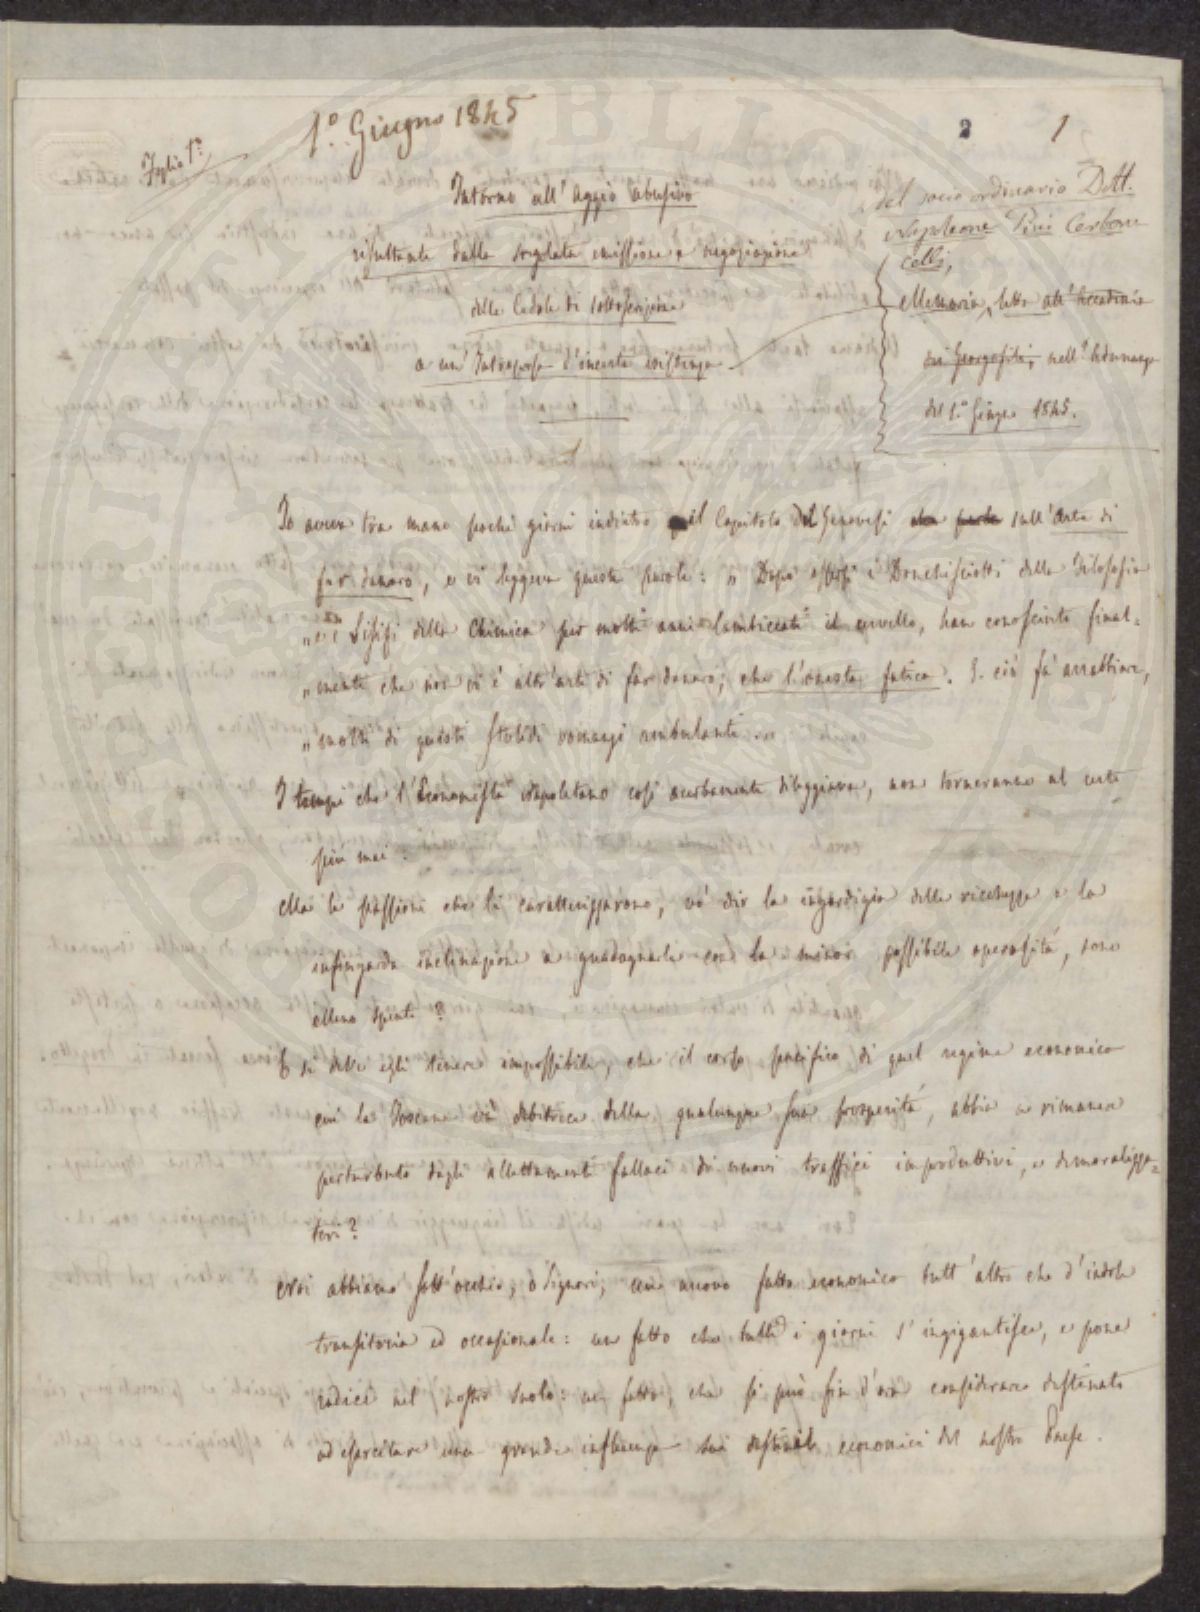 1.º Giugno 1845
2 1
Foglio 1º
Intorno all'Aggio abusivo
risultante dalla sregolata emissione e negoziazione
delle Cedole di sottoscrizione
a un'Intrapresa d'incerta esistenza
del socio ordinario Dott.
Napoleone Pini Carbon
celli,
Memoria, letta all'Accademia
dei Georgofili, nell'Adunanza
del 1.º Giugno 1845.
Io aveva tra mano pochi giorni indietro il Capitolo del Genovesi sull'Arte di
far danaro, e vi leggeva queste parole: „ Dopo essersi i Donchisciotti della Filosofia
„ e i Sisifi della Chimica per molti anni lambiccati il cervello, han conosciuto final=
„ mente che non vi è altr'arte di far danaro, che l'onesta fatica. E ciò fa' arrabbiare,
„ molti di questi stolidi romanzi ambulanti „
I tempi che l'Economista napoletano così acerbamente dileggiava, non torneranno al certo
più mai.
Ma le passioni che li caratterizzarono, vo' dir la ingordigia delle ricchezze e la
infingarda inclinazione a guadagnarle con la minor possibile operosità, sono
elleno spente?
E si deve egli tenere impossibile, che il corso pacifico di quel regime economico
cui la Toscana và debitrice della qualunque sua prosperità, abbia a rimanere
perturbato dagli allettamenti fallaci di nuovi traffici improduttivi, e demoralizza=
tori?
Noi abbiamo sott'occhio, o Signori, un nuovo fatto economico tutt'altro che d'indole
transitoria ed occasionale: un fatto che tutti i giorni s'ingigantisce, e pone
radici nel nostro suolo: un fatto, che si può fin d'ora considerare destinato
ad esercitare una grande influenza sui destini economici del nostro Paese.